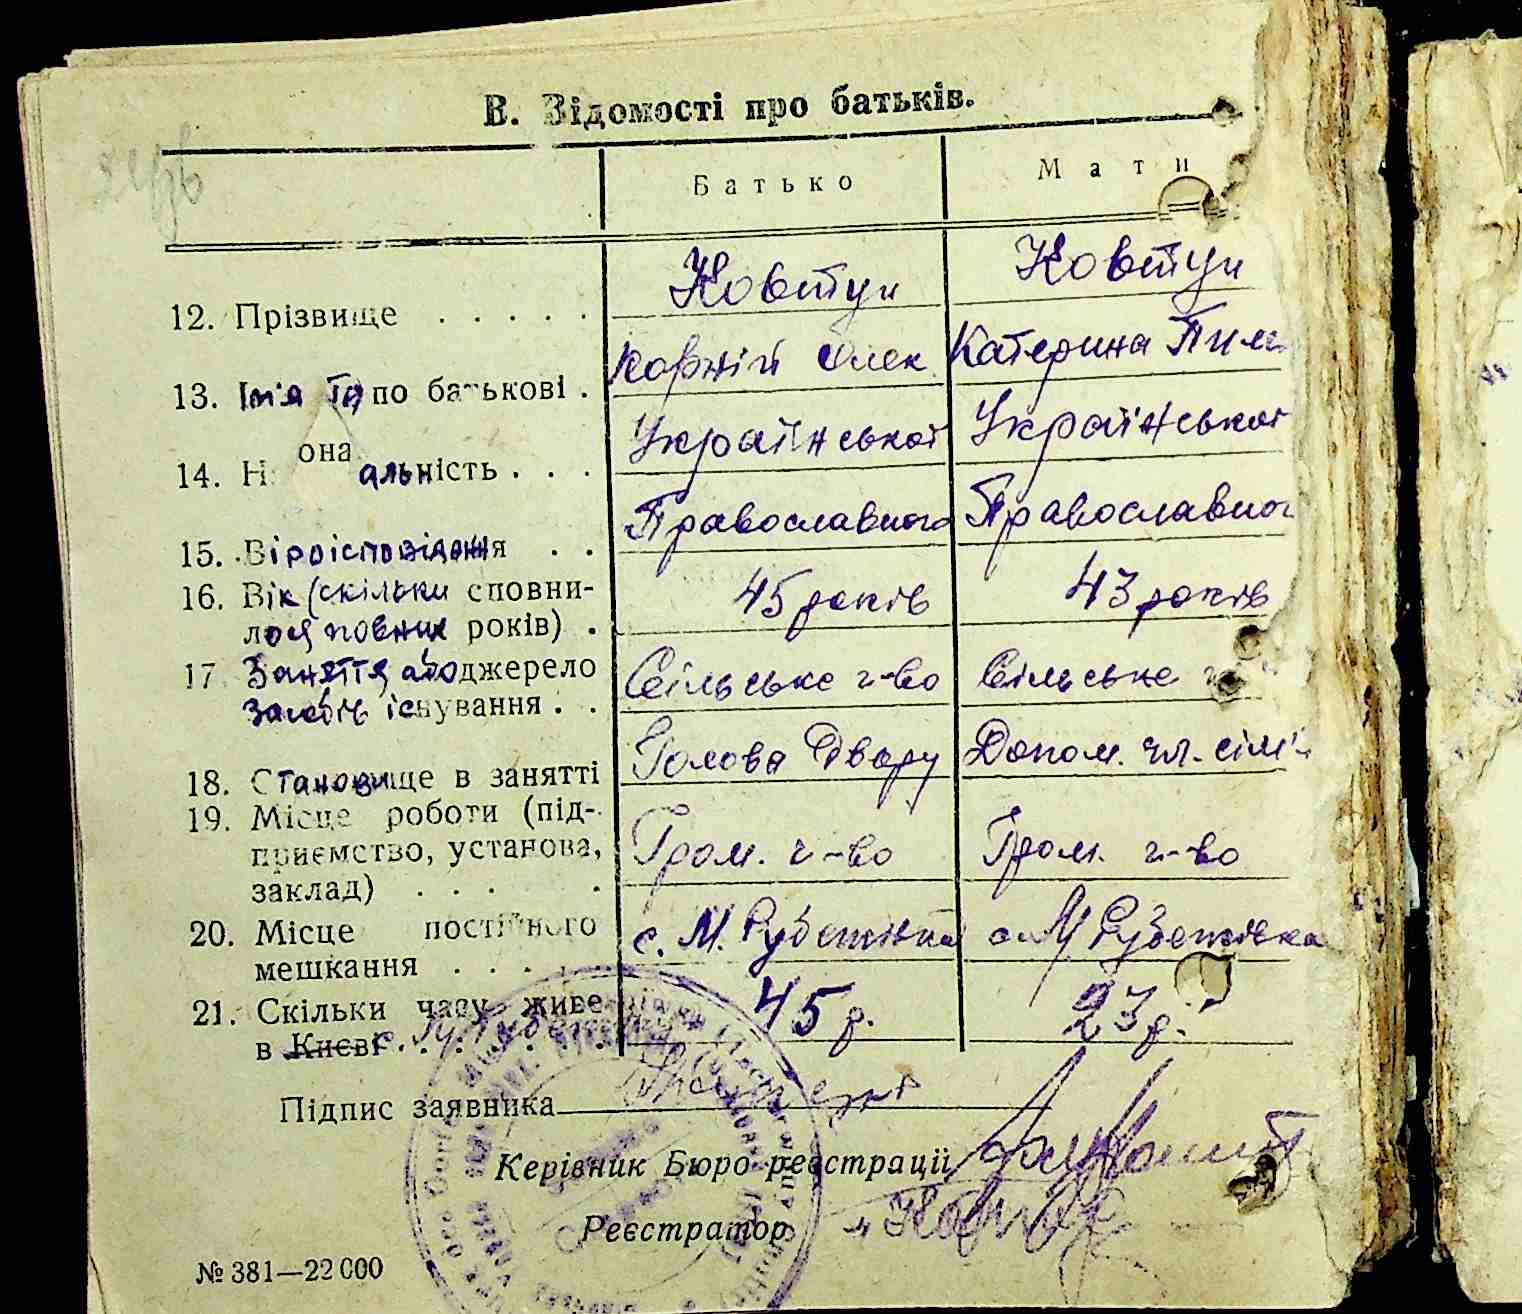 В. Відомості про батьків.
Батько Мати
12. Прізвище . . . . . Ковтун Ковтун
13. Ім'я та по батькові . Корній Олек Катерина Пим
14. Н она альність . . . Української Української
15. Віроісповідання . . Православного Православног
16. Вік (скільки сповни-
лося повних років) . 45 років 43 років
17. Заняття або джерело Сільське г-во Сільське г
засобів існування . .
18. Становище в занятті Голова Двору Допом. чл. сім'ї
19. Місце роботи (під-
приємство, установа, Гром. г-во Гром. г-во
заклад) . . . .
20. Місце постійного с. М. Рубежівка с. М Рубежівка
мешкання . . . .
21. Скільки часу живе 45 р. 23 р.
в Києві с.
Підпис заявника
Керівник Бюро реєстрації
Реєстратор
№ 381—22 000